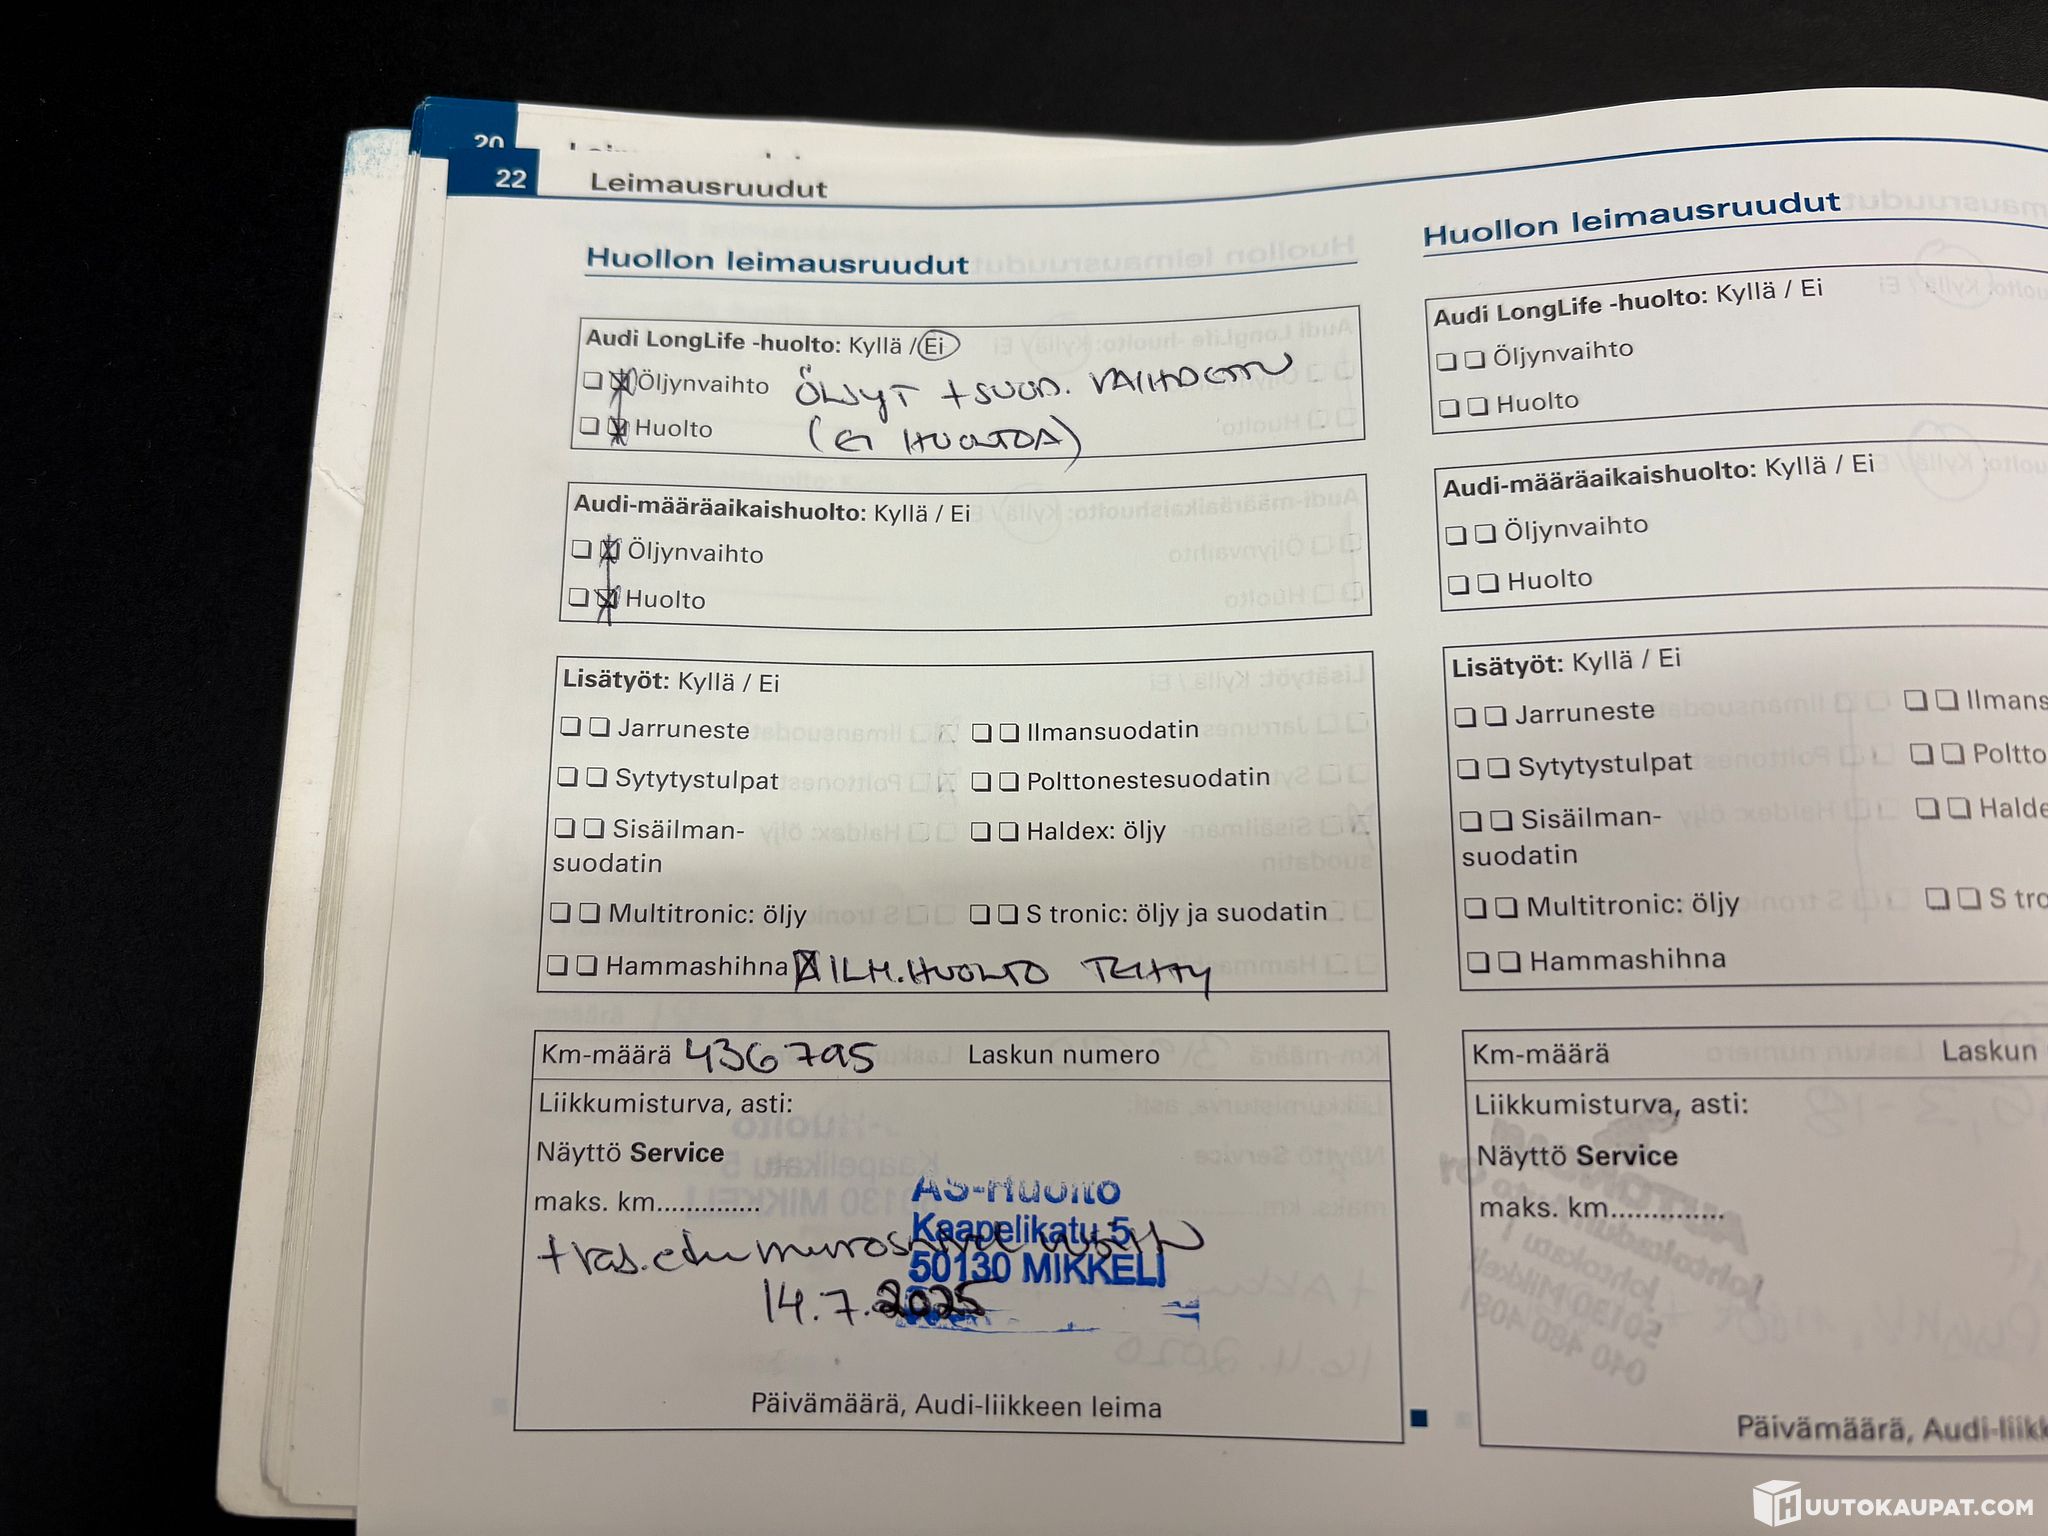 20
22 Leimausruudut
Huollon leimausruudut
Audi LongLife -huolto: Kyllä / Ei
Öljynvaihto ÖLJYT + SUOD. VAIHDETTU
Huolto (EI HUOLTOA)
Audi-määräaikaishuolto: Kyllä / Ei
Öljynvaihto
Huolto
Lisätyöt: Kyllä / Ei
Jarruneste Ilmansuodatin
Sytytystulpat Polttonestesuodatin
Sisäilman- Haldex: öljy
suodatin
Multitronic: öljy S tronic: öljy ja suodatin
Hammashihna ILM. HUOLTO TEHTY
Km-määrä 436795 Laskun numero
Liikkumisturva, asti:
Näyttö Service
maks. km..............
AS-Huolto
Kaapelikatu 5
50130 MIKKELI
14.7.2025
Päivämäärä, Audi-liikkeen leima
Huollon leimausruudut
Audi LongLife -huolto: Kyllä / Ei
Öljynvaihto
Huolto
Audi-määräaikaishuolto: Kyllä / Ei
Öljynvaihto
Huolto
Lisätyöt: Kyllä / Ei
Jarruneste Ilmans
Sytytystulpat Poltto
Sisäilman- Halde
suodatin
Multitronic: öljy S tro
Hammashihna
Km-määrä Laskun
Liikkumisturva, asti:
Näyttö Service
maks. km..............
Päivämäärä, Audi-liikk
HUUTOKAUPAT.COM